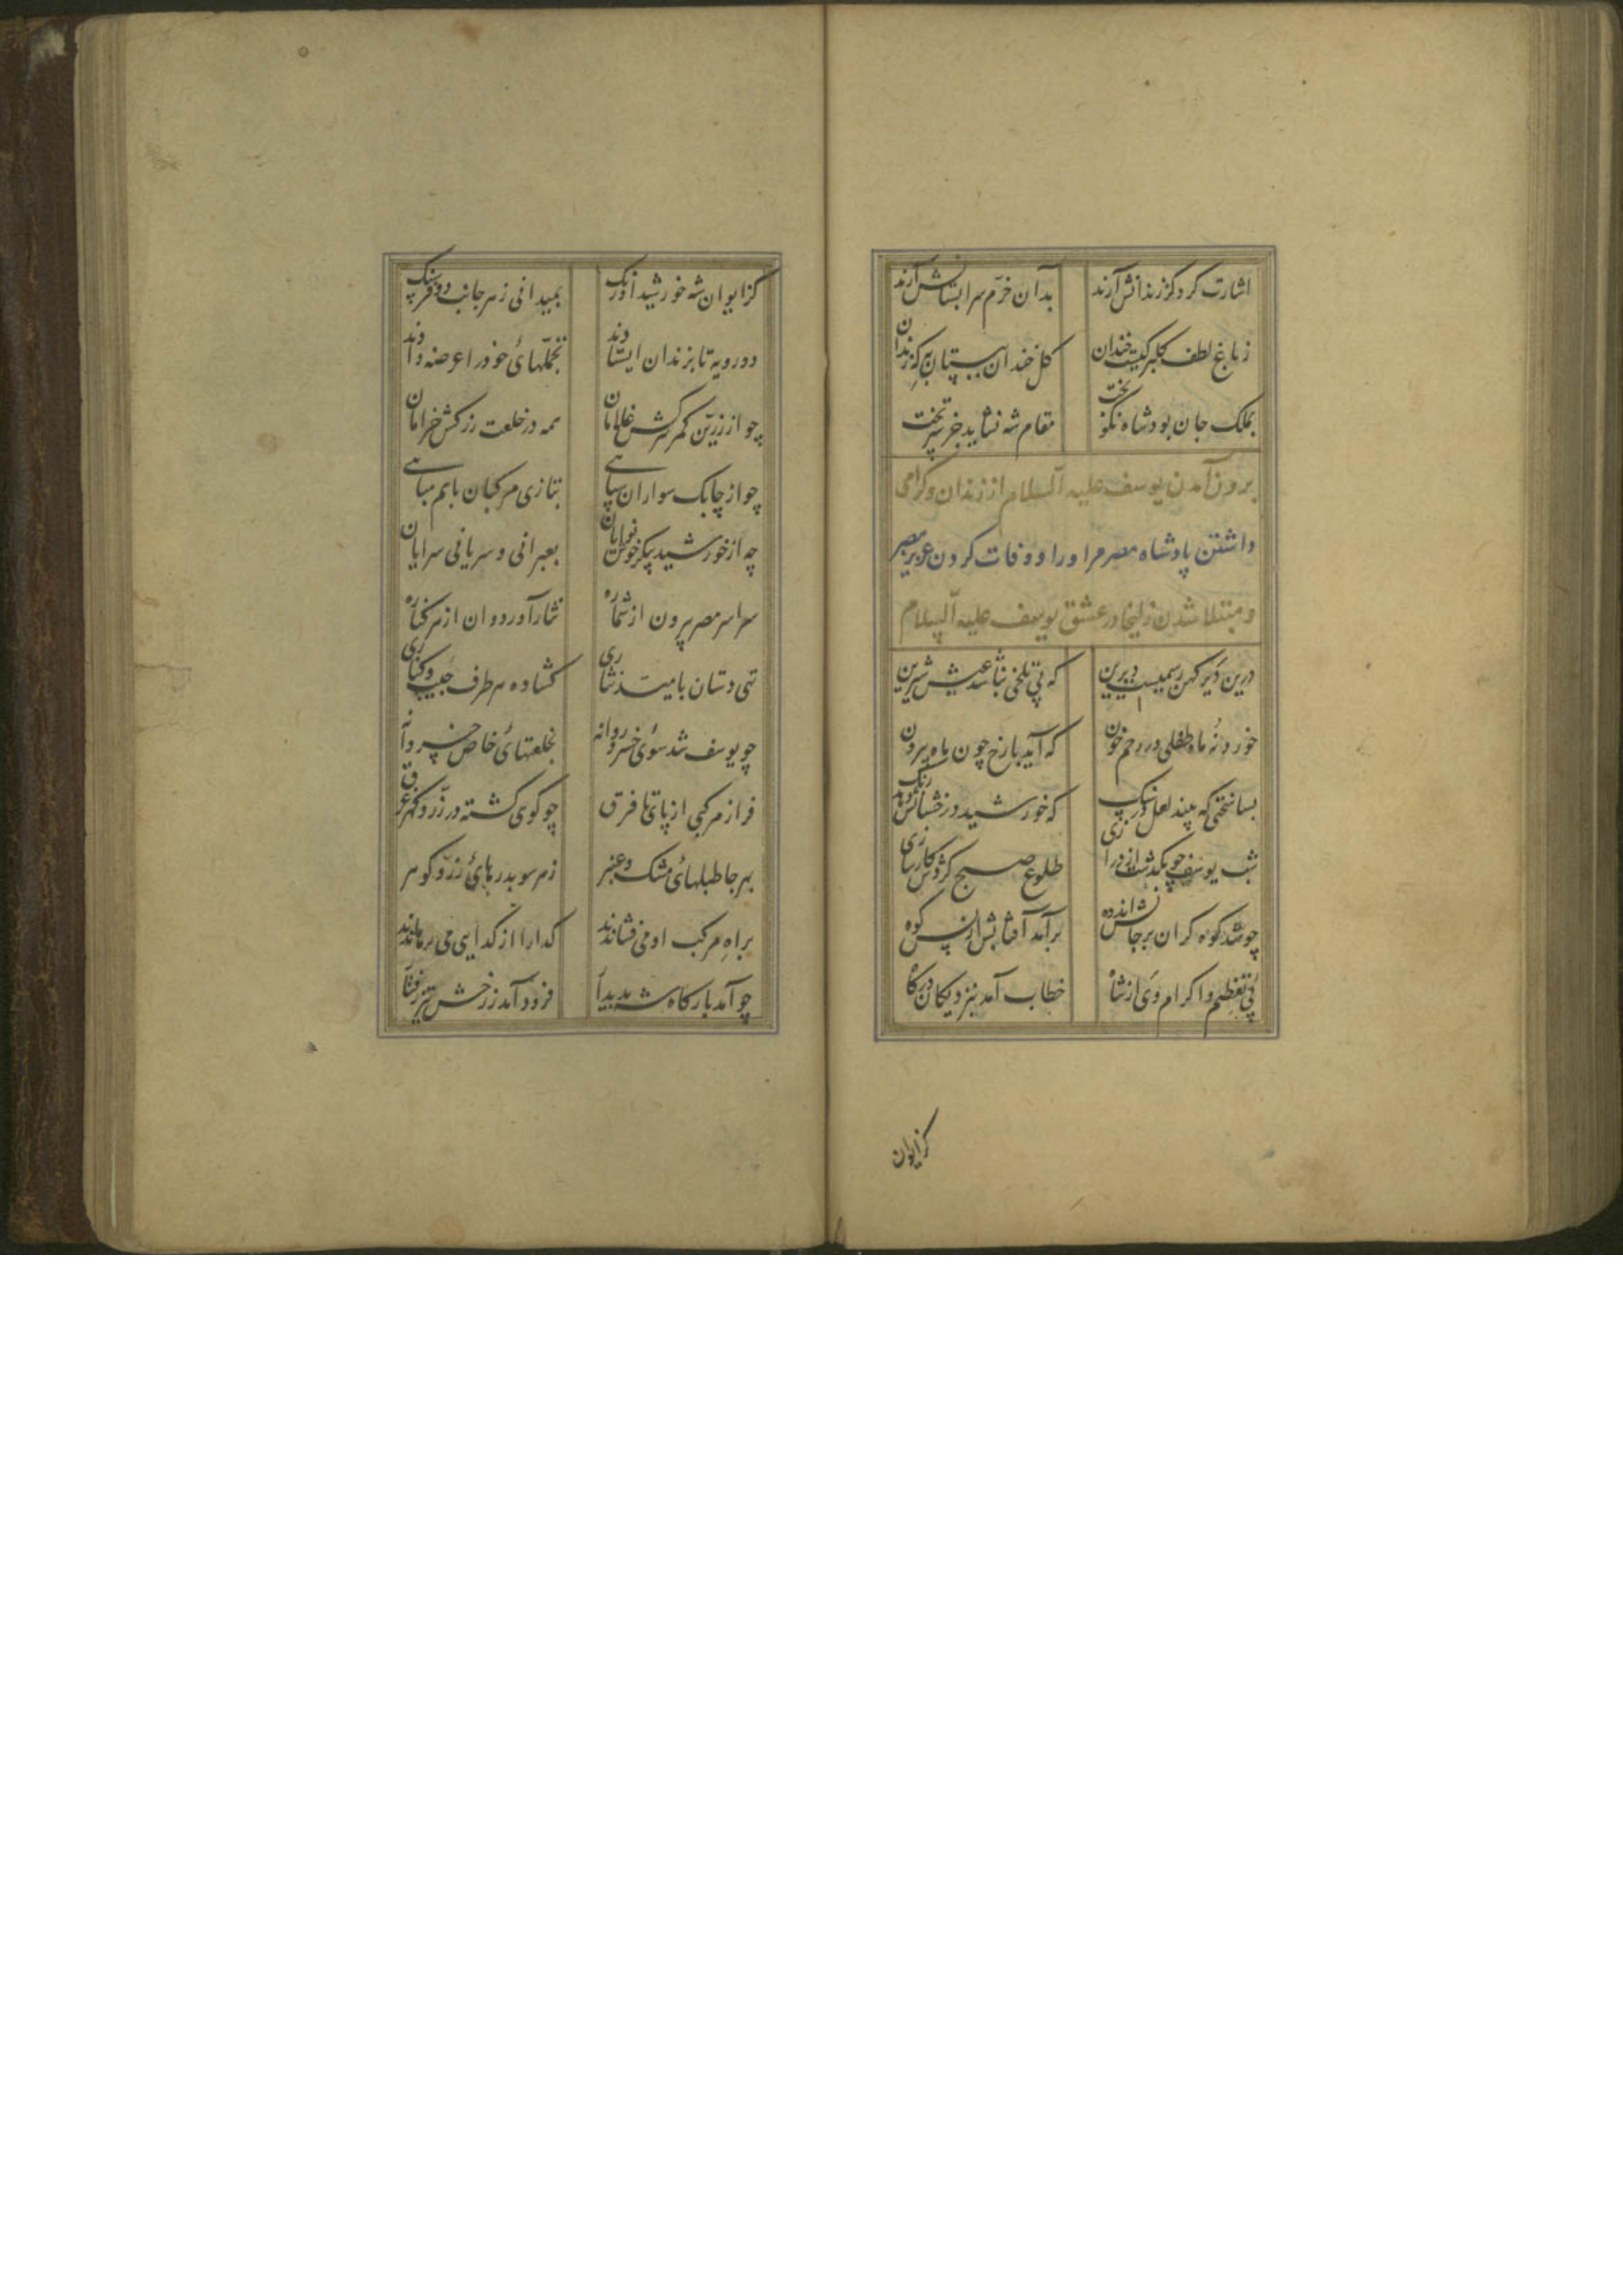 اشارت کرد کز زندانش آرند بدان خرّم سرابستانش آرند
ز باغ لطف گلبرگیست خندان گل خندان ببستان به که زندان
بملک جان بود شاه نکو بخت مقام شه نشاید جز سر تخت
برون آمدن یوسف علیه السلام از زندان و گرامی
داشتن پادشاه مصر مر او را و وفات کردن عزیز مصر
و مبتلا شدن زلیخا در عشق یوسف علیه السلام
درین دَیر کهن رسمیست دیرین که بی تلخی نباشد عیش شیرین
خورد نُه ماه طفلی در رحم خون که آید با رخ چون ماه بیرون
بسا سختی که بیند لعل در سنگ که خورشید درخشانش دهد رنگ
شب یوسف چو بگذشت از درازی طلوع صبح کردش کارسازی
چو شد کوه گران بر جانش اندوه برآمد آفتابش از پس کوه
پی تعظیم و اکرام وَی از شاه خطاب آمد بنزدیکان درگاه
کز ایوان
کز ایوان شه خورشید اورنگ بمیدانی ز هر جانب دو فرسنگ
دو رویه تا بزندان ایستادند تجمّلهای خود را عرضه دادند
چو از زرّین کمر سرکش غلامان همه در خلعت زرکش خرامان
چو از چابک سواران سپاهی بتازی مرکبان باهم مباهی
چه از خورشید پیکر خوش نوایان بعبرانی و سریانی سرایان
سراسر مصر بیرون از شماره نثار آورد و ان از هر کناره
تهی دستان بامید نثاری گشاده هر طرف جیب و کناری
چو یوسف شد سوی خسرو روانه بخلعتهای خاص خسروانه
فراز مرکبی از پای تا فرق چو کوی گشته در زرّ و گهر غرق
بهر جا طبلهای مشک و عنبر ز هر سو بدرهای زرّ و گوهر
براهِ مرکب او می فشاندند گدا را از گدایی می رهاندند
چو آمد بارگاه شه پدیدار فرود آمد ز رخش تیز رفتار